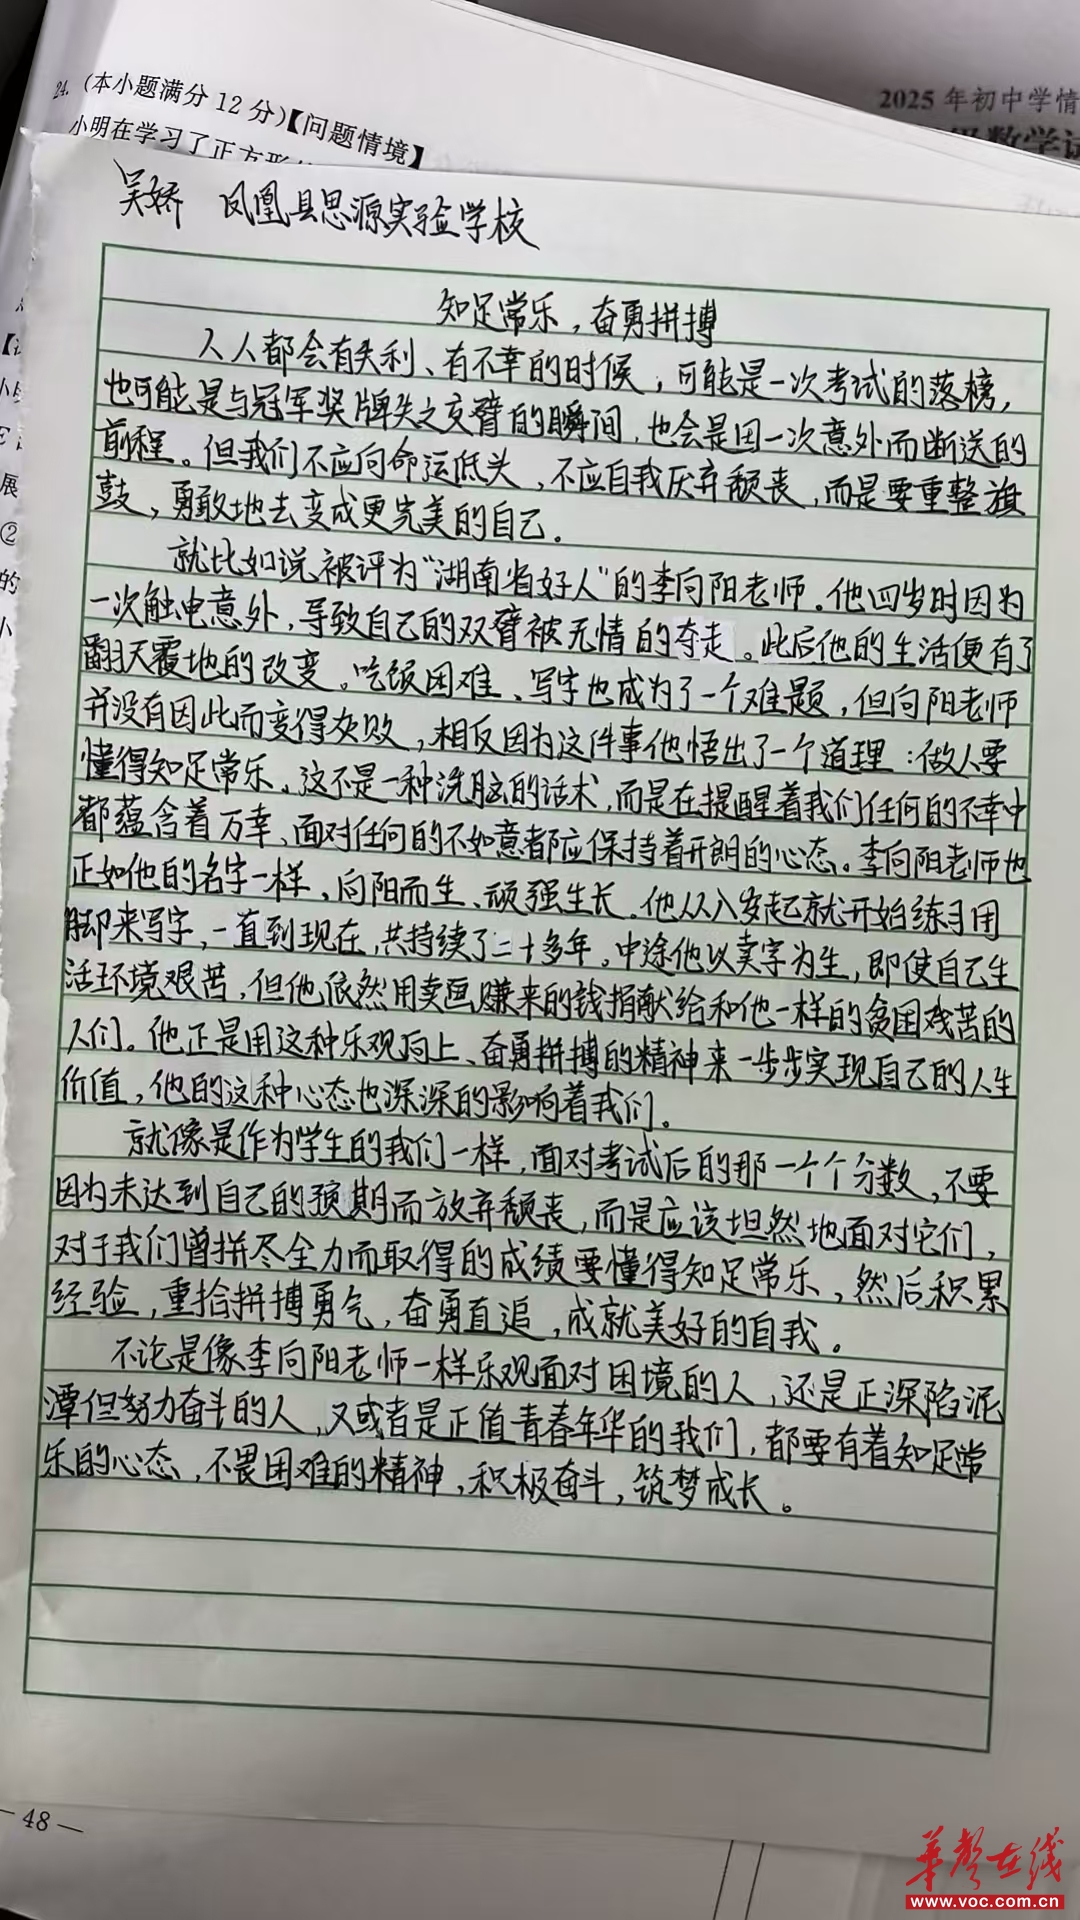 24. (本小题满分 12 分)【问题情境】
小明在学习了正方形
2025 年初中学情
吴娇 凤凰县思源实验学校
知足常乐，奋勇拼搏
人人都会有失利、有不幸的时候，可能是一次考试的落榜，
也可能是与冠军奖牌失之交臂的瞬间，也会是因一次意外而断送的
前程。但我们不应向命运低头，不应自我厌弃颓丧，而是要重整旗
鼓，勇敢地去变成更完美的自己。
就比如说被评为“湖南省好人”的李向阳老师。他四岁时因为
一次触电意外，导致自己的双臂被无情的夺走。此后他的生活便有了
翻天覆地的改变。吃饭困难、写字也成为了一个难题，但向阳老师
并没有因此而变得灰败，相反因为这件事他悟出了一个道理：做人要
懂得知足常乐。这不是一种洗脑的话术，而是在提醒着我们任何的不幸中
都蕴含着万幸、面对任何的不如意都应保持着开朗的心态。李向阳老师也
正如他的名字一样，向阳而生、顽强生长。他从八岁起就开始练习用
脚来写字，一直到现在，共持续了二十多年。中途他以卖字为生，即使自己生
活环境艰苦，但他依然用卖画赚来的钱捐献给和他一样的贫困艰苦的
人们。他正是用这种乐观向上、奋勇拼搏的精神来一步步实现自己的人生
价值，他的这种心态也深深的影响着我们。
就像是作为学生的我们一样，面对考试后的那一个个分数，不要
因为未达到自己的预期而放弃颓丧，而是应该坦然地面对它们，
对于我们曾拼尽全力而取得的成绩要懂得知足常乐，然后积累
经验，重拾拼搏勇气，奋勇直追，成就美好的自我。
不论是像李向阳老师一样乐观面对困境的人，还是正深陷泥
潭但努力奋斗的人，又或者是正值青春年华的我们，都要有着知足常
乐的心态、不畏困难的精神，积极奋斗，筑梦成长。
— 48 —
华声在线
www.voc.com.cn